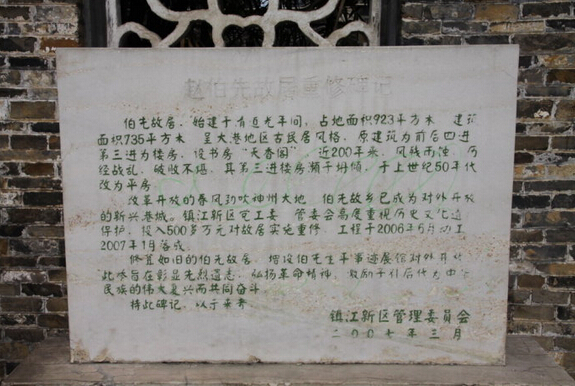 赵伯先故居重修碑记
伯先故居，始建于清道光年间，占地面积923平方米，建筑
面积735平方米，呈大港地区古民居风格，原建筑为前后四进
第三进为楼房，设书房“天香阁”，近200年来，风残雨蚀，历
经战乱，破败不堪，其第三进楼房濒于坍倾，于上世纪50年代
改为平房。
改革开放的春风劲吹神州大地，伯先故乡已成为对外开放
的新兴港城。镇江新区党工委、管委会高度重视历史文化遗
保护，投入500多万元对故居实施重修，工程于2006年6月动工
2007年1月落成。
修复如旧的伯先故居，增设伯先生平事迹展馆对外开放
此修旨在彰显先烈遗志，弘扬革命精神，激励子引后代为中华
民族的伟大复兴而共同奋斗。
特此碑记，以示来者
镇江新区管理委员会
二〇〇七年三月